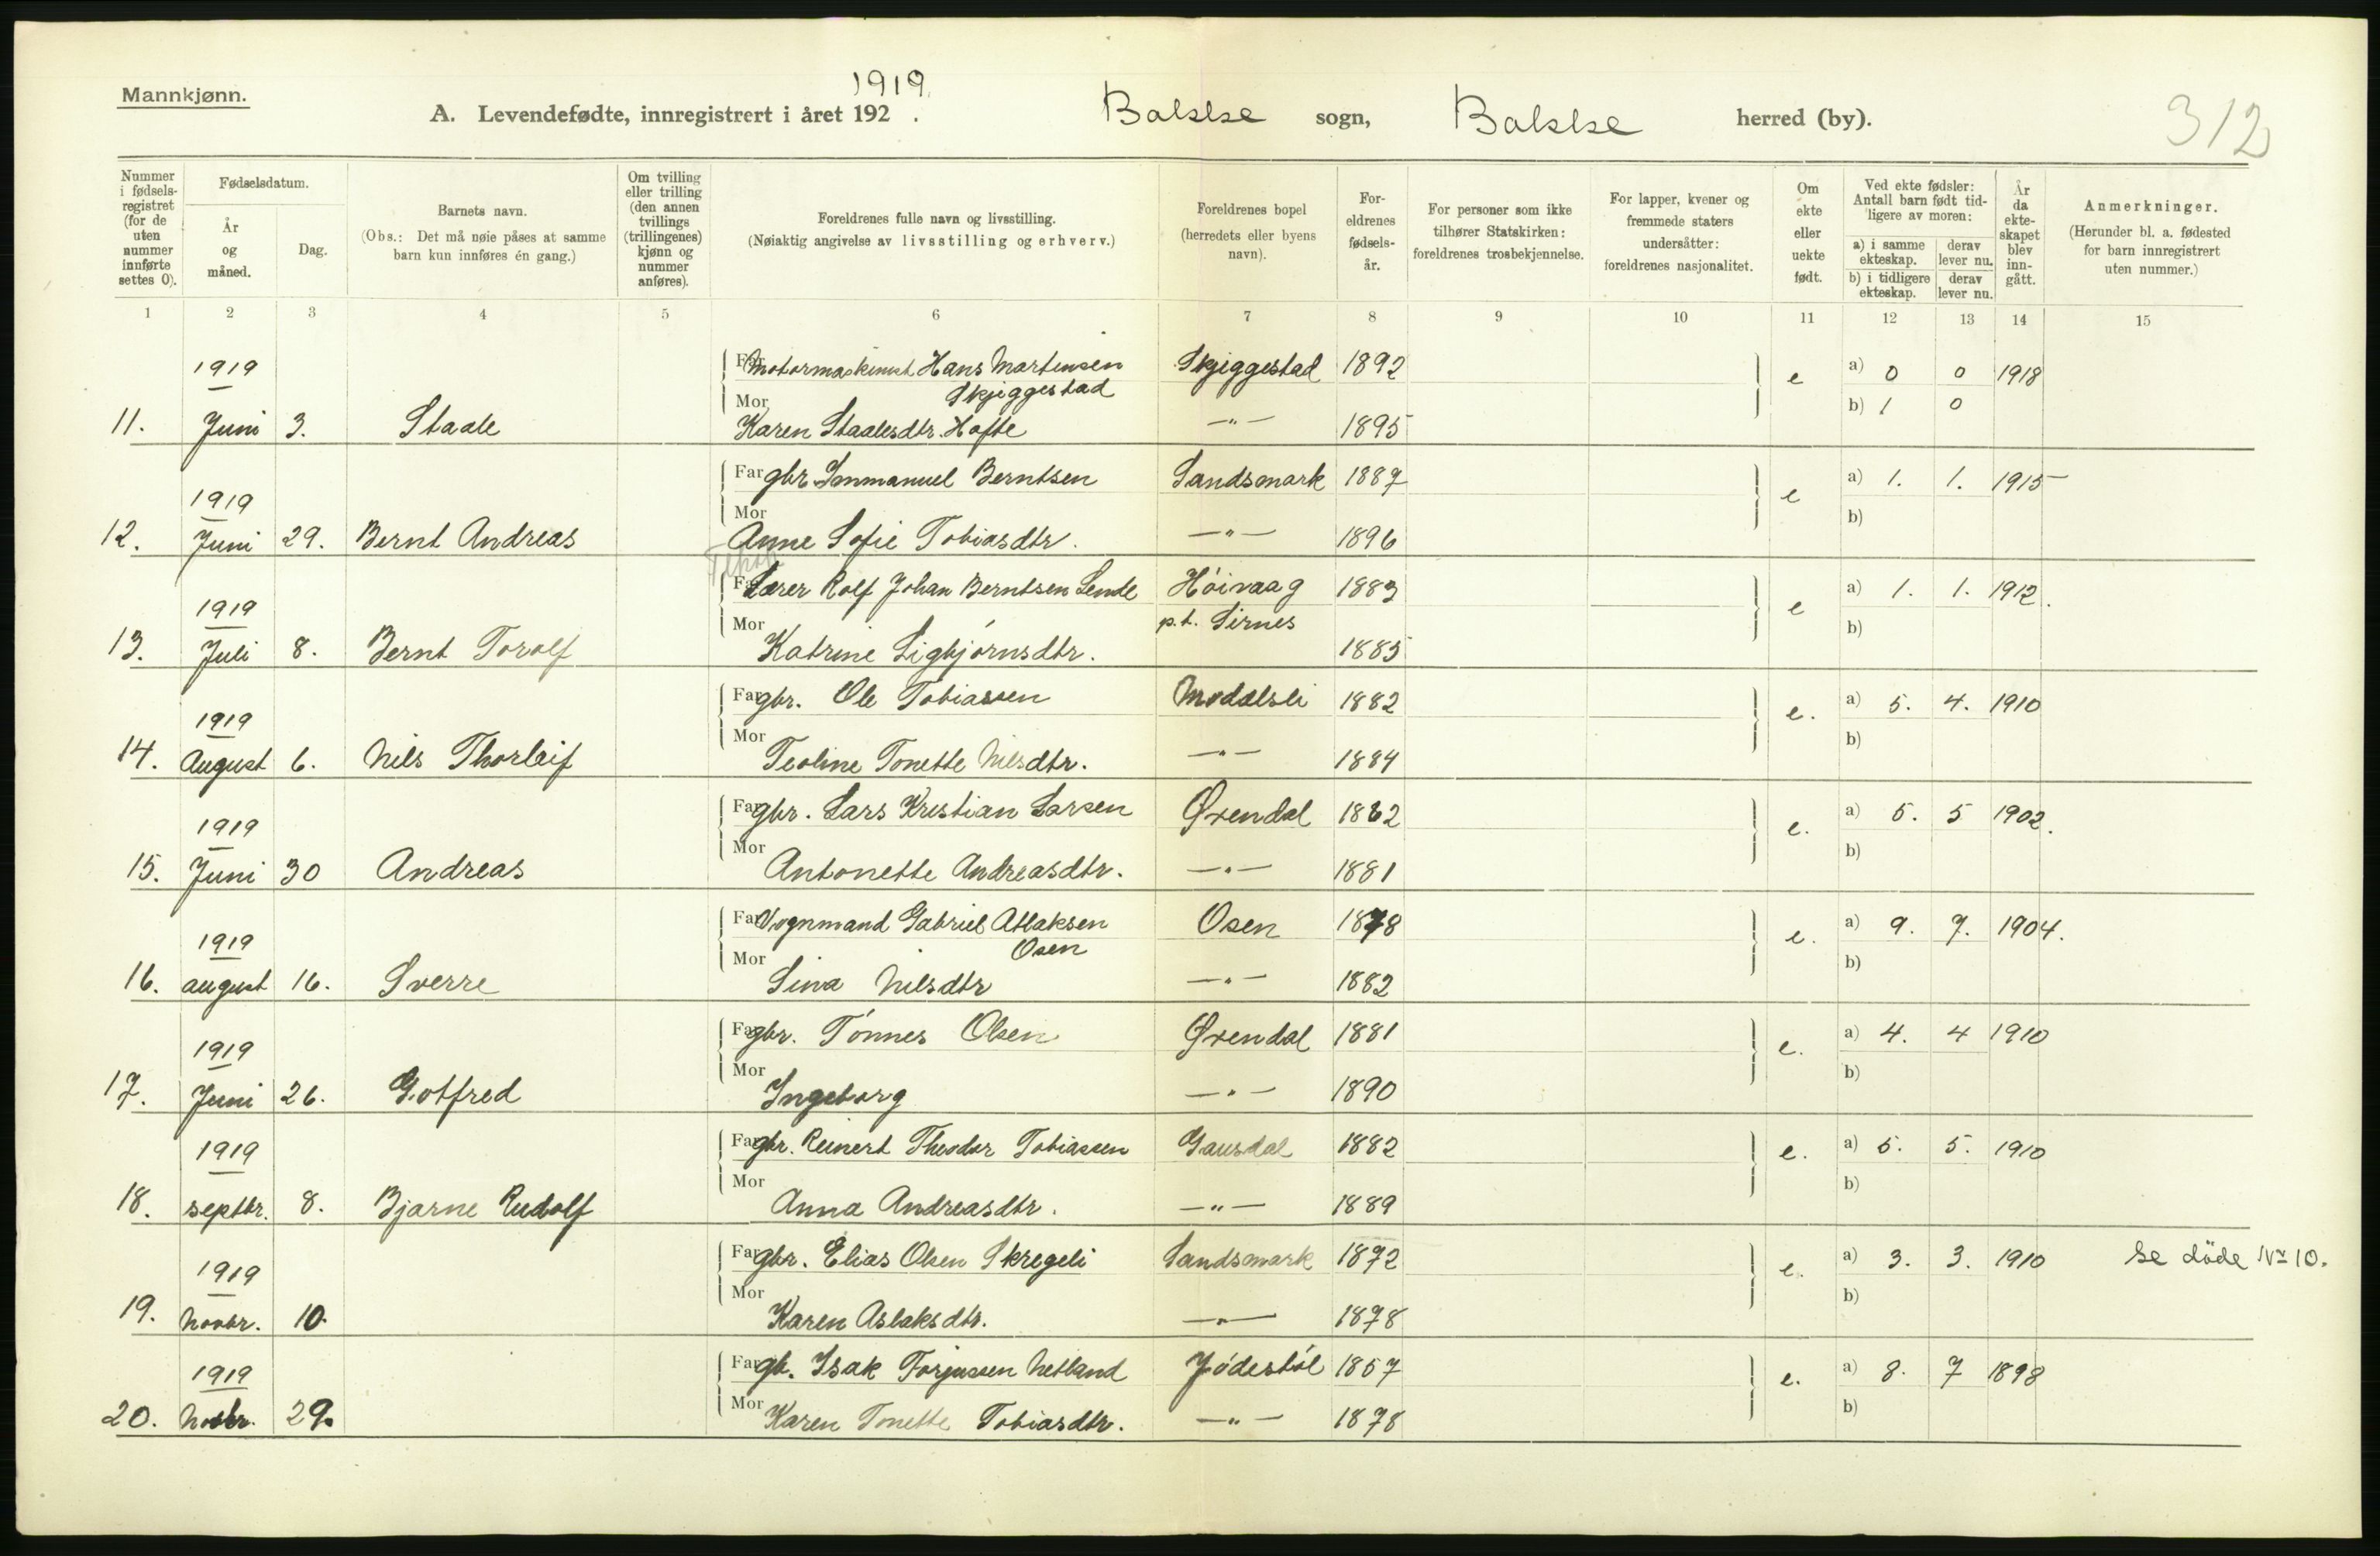 Mannkjønn.
1919.
A. Levendefødte, innregistrert i året 192 . Bakke sogn, Bakke herred (by).
312
Nummer i fødsels- registret (for de uten nummer innførte settes 0).
Fødselsdatum.
År og måned.
Dag.
Barnets navn.
(Obs.: Det må nøie påses at samme barn kun innføres én gang.)
Om tvilling eller trilling (den annen tvillings (trillingenes) kjønn og nummer anføres).
Foreldrenes fulle navn og livsstilling.
(Nøiaktig angivelse av livsstilling og erhverv.)
Foreldrenes bopel (herredets eller byens navn).
For- eldrenes fødsels- år.
For personer som ikke tilhører Statskirken: foreldrenes trosbekjennelse.
For lapper, kvener og fremmede staters undersåtter: foreldrenes nasjonalitet.
Om ekte eller uekte født.
Ved ekte fødsler: Antall barn født tid- ligere av moren:
a) i samme ekteskap.
derav lever nu.
b) i tidligere ekteskap.
derav lever nu.
År da ekte- skapet blev inn- gått.
Anmerkninger.
(Herunder bl. a. fødested for barn innregistrert uten nummer.)
1 2 3 4 5 6 7 8 9 10 11 12 13 14 15
1919 Far Motormaskinist Hans Martensen Skjeggestad 1892 e a) 0 0 1918
Skjeggestad
Mor b) 1 0
11. Juni 3. Staale Karen Staalesdtr. Hafte —"— 1895
Far gbr. Immanuel Berntsen Sandsmark 1887 e a) 1. 1. 1915
1919 Mor b)
12. Juni 29. Bernt Andreas Anne Sofie Tobiasdtr. —"— 1896
Far Lærer Rolf Johan Berntsen Lende Höivaag 1883 e a) 1. 1. 1912.
1919 Mor p.t. Sirnes b)
13. Juli 8. Bernt Torolf Katrine Sigbjörnsdtr. 1885
Far gbr. Ole Tobiassen Modalsli 1882 e. a) 5. 4. 1910
1919 Mor b)
14. August 6. Nils Thorleif Teoline Tonette Nilsdtr. —"— 1884
Far gbr. Lars Kristian Larsen Øxendal 1882 e. a) 5. 5 1902.
1919 Mor b)
15. Juni 30 Andreas Antonette Andreasdtr. —"— 1881
Far Vognmand Gabriel Atlaksen Osen 1878 e. a) 9. 7. 1904.
Osen
1919 Mor b)
16. august 16. Sverre Sina Nilsdtr —"— 1882
Far gbr. Tönnes Olsen Øxendal 1881 e. a) 4. 4 1910
1919 Mor b)
17. Juni 26. Gotfred Ingeborg —"— 1890
Far gbr. Reinert Theodor Tobiassen Gausdal 1882 e. a) 5. 5. 1910
1919 Mor b)
18. septbr. 8. Bjarne Rudolf Anna Andreasdtr. —"— 1889
Far gbr. Elias Olsen Skregeli Sandsmark 1872 e. a) 3. 3. 1910 Se döde Nr 10.
1919 Mor b)
19. Novbr. 10. Karen Aslaksdtr. —"— 1878
Far gb. Isak Torjussen Netland Jödestöl 1857 e. a) 8. 7 1898
1919 Mor b)
20. Novbr. 29. Karen Tonette Tobiasdtr. —"— 1878